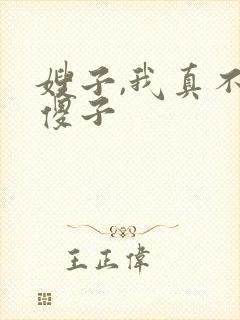 嫂子,我真不
傻子
王正偉